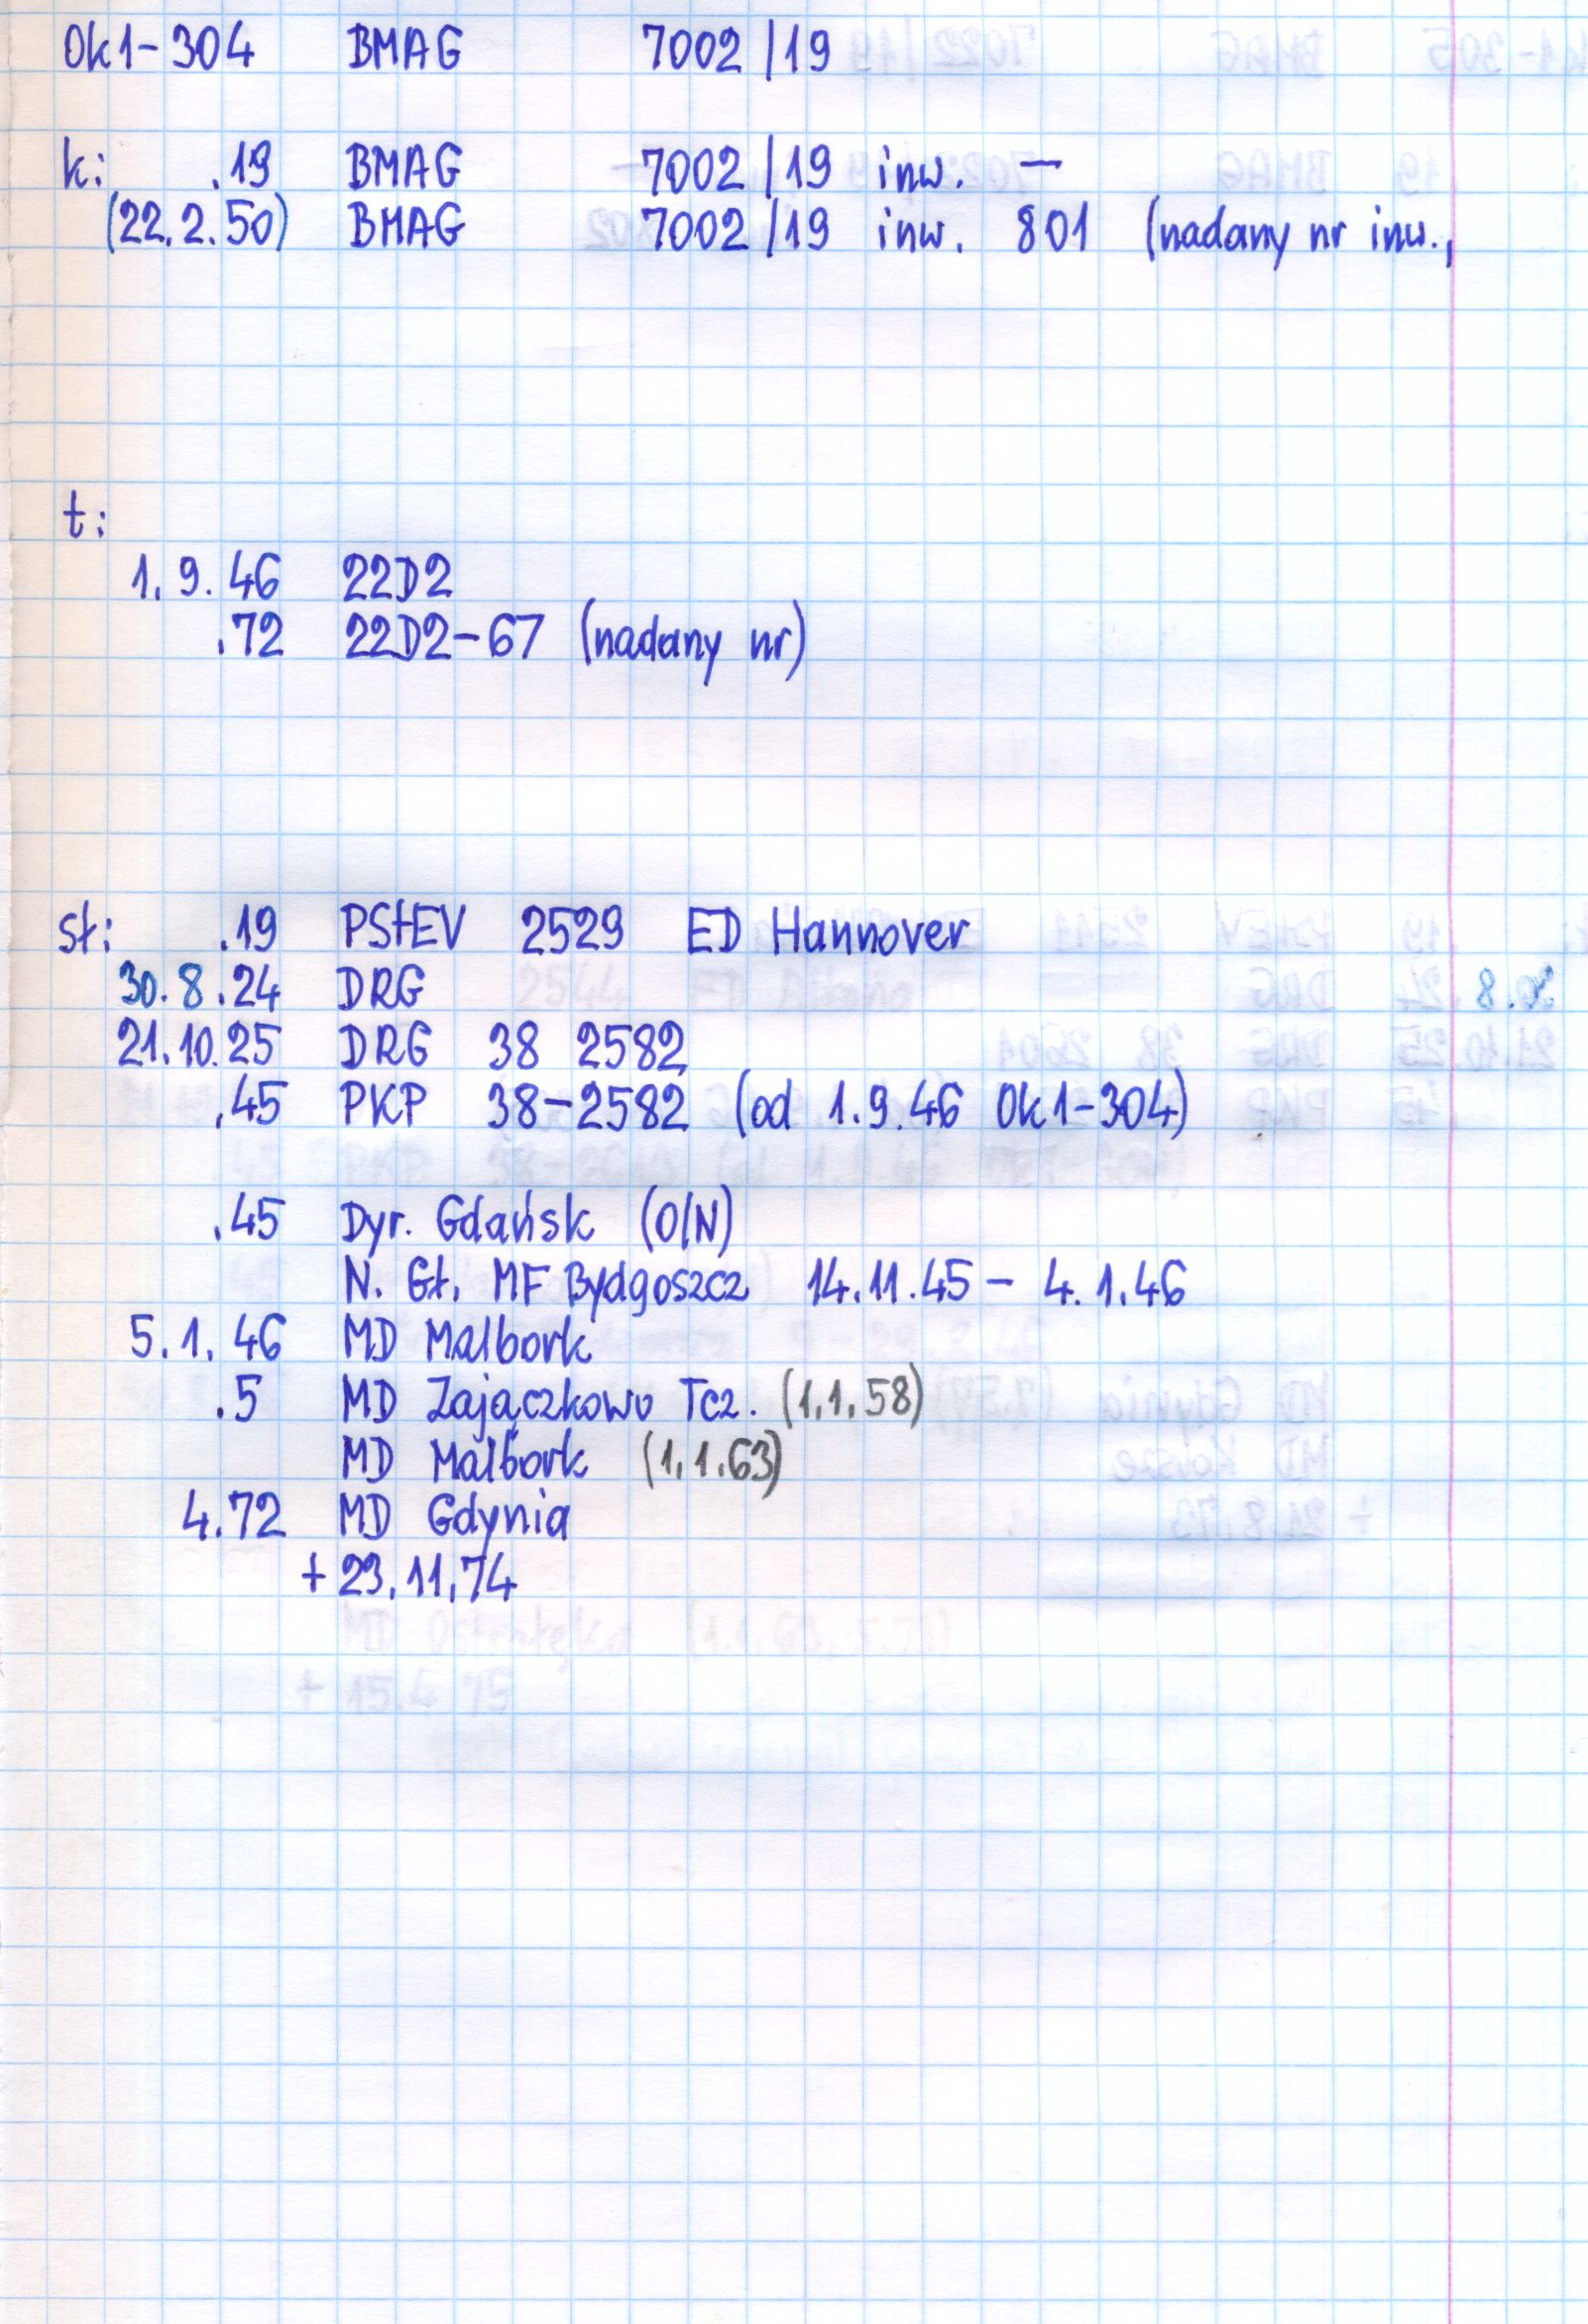 Ok1-304 BMAG 7002/19
k: .19 BMAG 7002/19 inw. —
(22.2.50) BMAG 7002/19 inw. 801 (nadany nr inw.,
t:
1.9.46 22D2
.72 22D2-67 (nadany nr)
st: .19 PStEV 2529 ED Hannover
30.8.24 DRG
21.10.25 DRG 38 2582
.45 PKP 38-2582 (od 1.9.46 Ok1-304)
.45 Dyr. Gdańsk (O/N)
N. Gł. MF Bydgoszcz 14.11.45 - 4.1.46
5.1.46 MD Malbork
.5 MD Zajączkowo Tcz. (1.1.58)
MD Malbork (1.1.63)
4.72 MD Gdynia
+ 23.11.74